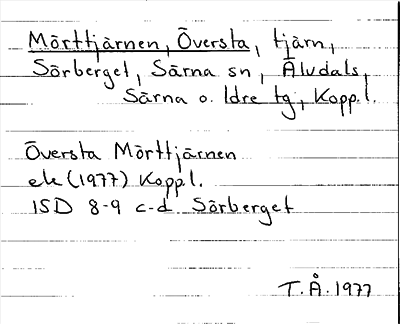 Mörttjärnen, Översta, tjärn,
Sörberget, Särna sn, Älvdals,
Särna o. Idre tg, Kopp.l.
Översta Mörttjärnen
ek (1977) Koppl.
ISD 8-9 c-d Sörberget
T.Å. 1977